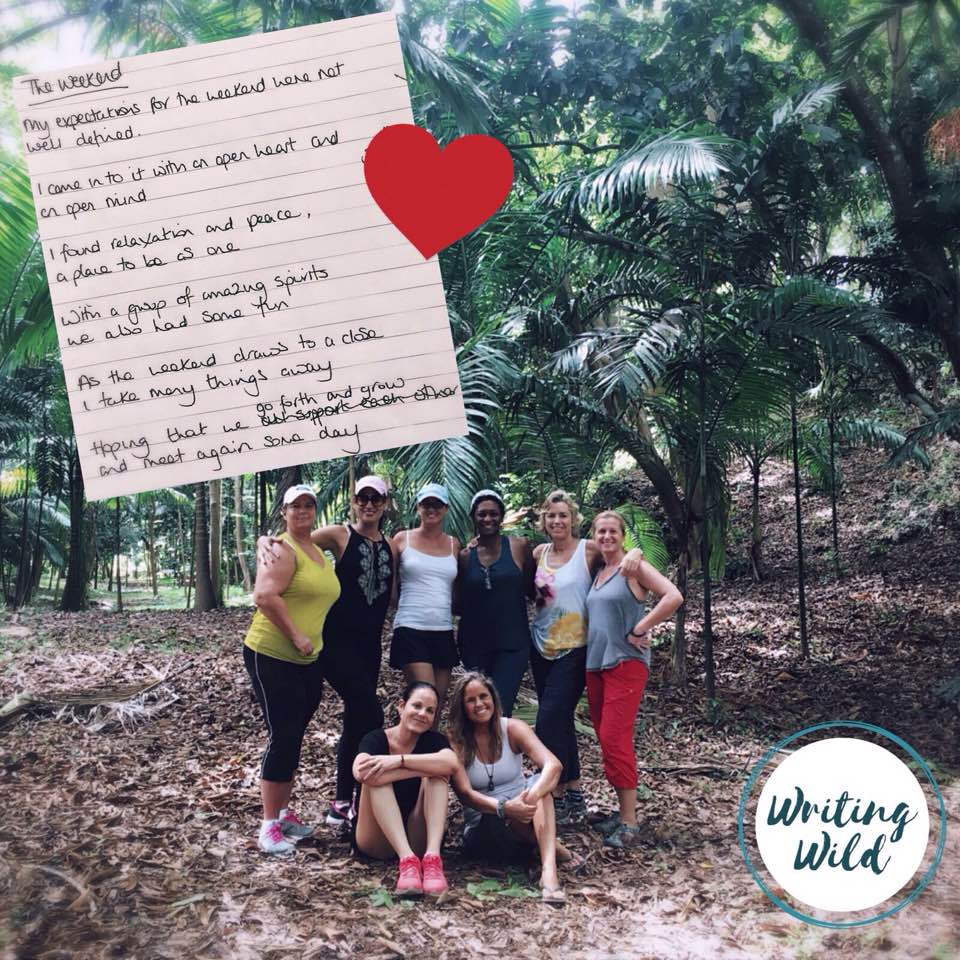 The weekend
My expectations for the weekend were not
well defined.
I came in to it with an open heart and
an open mind
I found relaxation and peace,
a place to be as one
With a group of amazing spirits
we also had some fun
As the weekend draws to a close
I take many things away
go forth and grow
Hoping that we support each other
and meet again some day
Writing
Wild